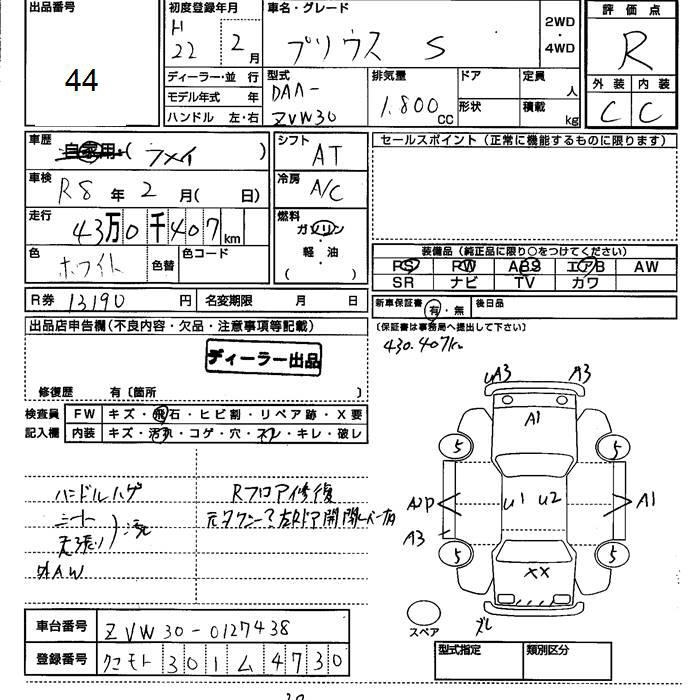 出品番号
44
初度登録年月
H 22 2月
ディーラー・並 行
モデル年式 年
ハンドル 左・右
車名・グレード
プリウス S
2WD・4WD
型式
DAA-
ZVW30
排気量
1.800 CC
ドア
形状
定員 人
積載 kg
評価点
R
外装 内装
C C
車歴
自家用・( )
車検
R8年2月( 日)
走行
43万0千407km
色
ホワイト
色替
色コード
シフト
AT
冷房
A/C
燃料
ガソリン
軽・油
( )
セールスポイント(正常に機能するものに限ります)
装備品(純正品に限り○をつけてください)
PS PW ABS エアB AW
SR ナビ TV カワ
R券 13190 円 名変期限 月 日
新車保証書 有・無 後日品
(保証書は事務局へ提出して下さい)
430.407km
出品店申告欄(不良内容・欠品・注意事項等記載)
ディーラー出品
修復歴 有〔箇所 〕
検査員記入欄
FW キズ・飛石・ヒビ割・リペア跡・X要
内装 キズ・汚れ・コゲ・穴・スレ・キレ・破レ
ハンドルハゲ
シート
天張り
汚
外AW
Rフロア修復
元タクシー?左Rドア開閉レバー有
A3 A3
A1
5 5
U1 U2
A1
A3
5 5
XX
スペア
ズレ
車台番号 ZVW30-0127438
登録番号 クマモト 301 ム 4730
型式指定 類別区分